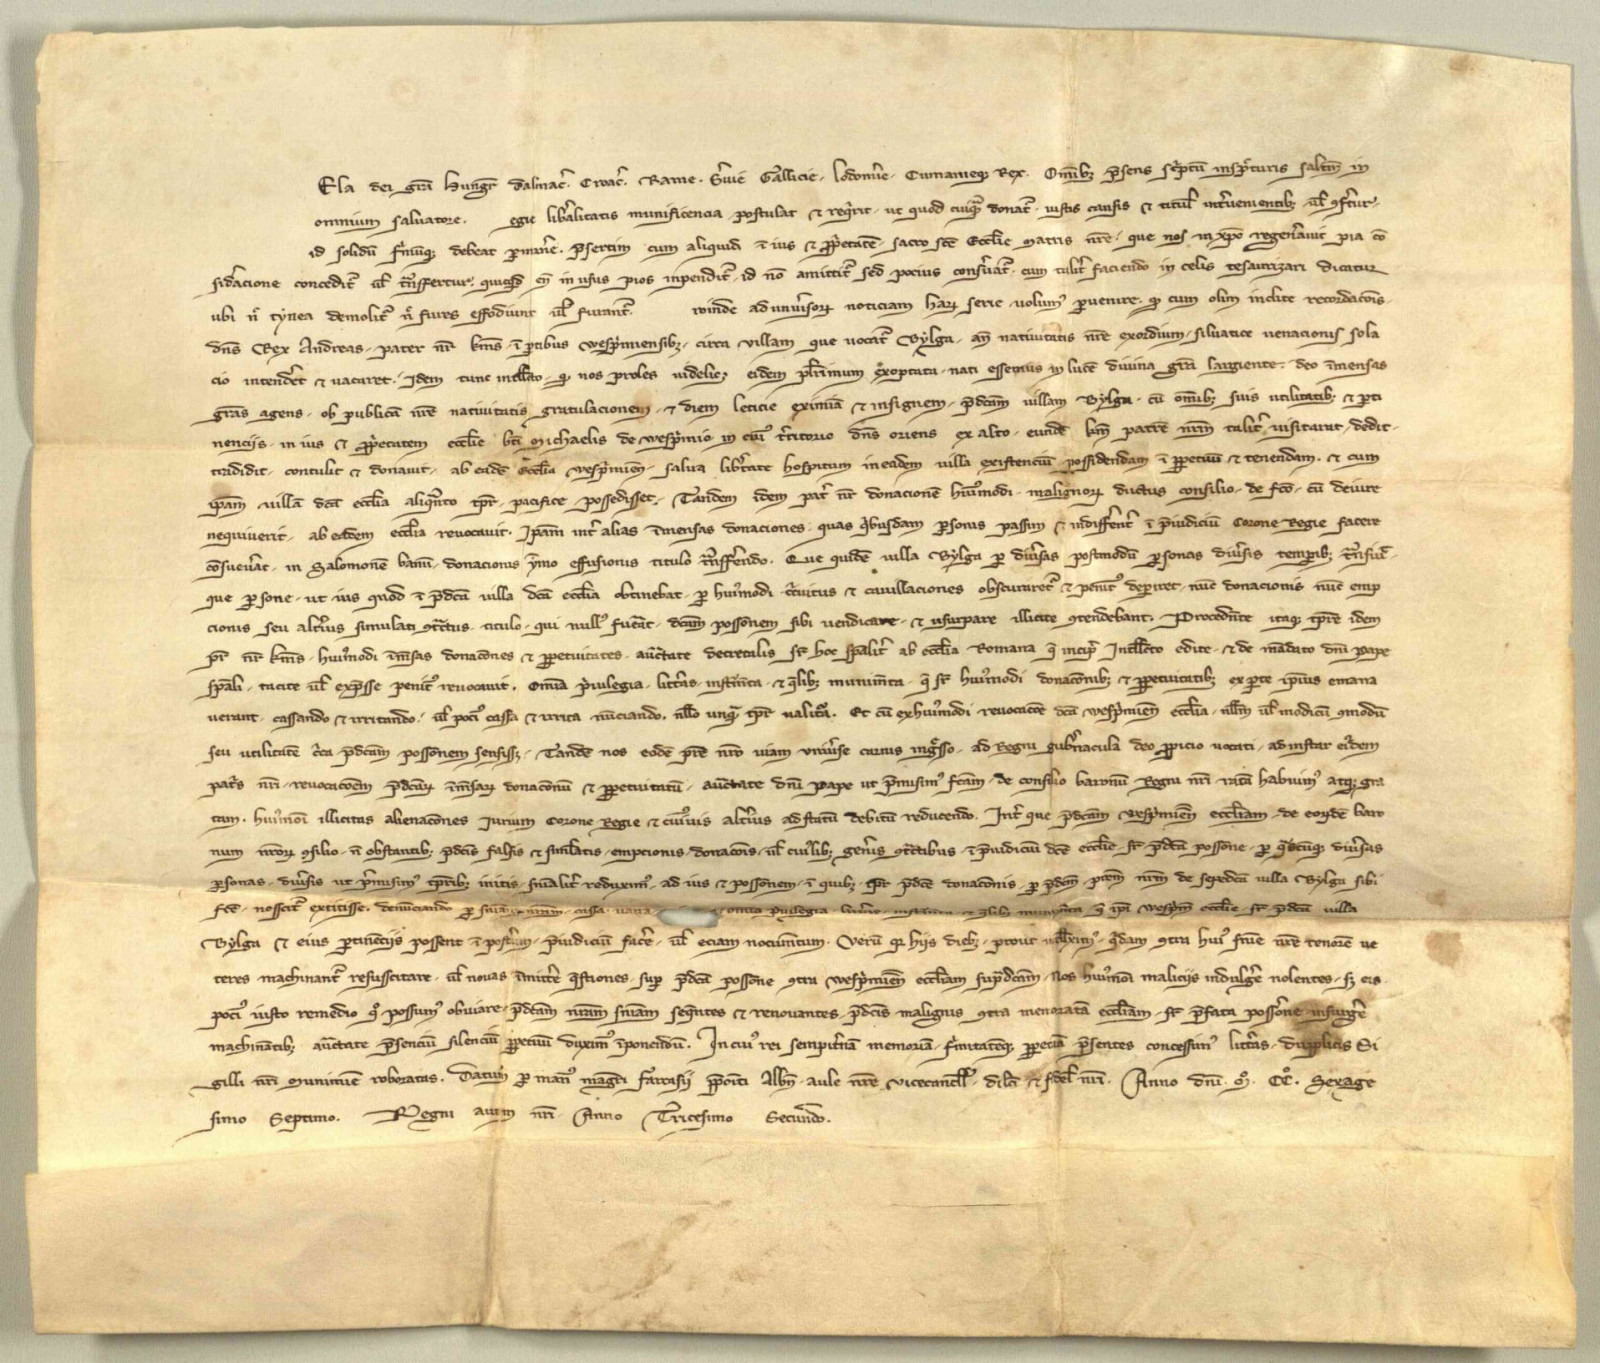 Ela dei gra͞ Hung͞r Dalmac͞. Croac͞. Rame. S͞uie Gallicie. Lodom͞ie. Cumanieq; Rex. Om͞ib; p͞sens sc͞ptu͞ insp͞cturis salt͞m in
omnium saluatore. egie lib͞alitatis munificencia. postulat & req͞rit. ut quod cuiq͞ donat͞. iustis causis & titul͞ int͞uenientib; ul͞ (?)
id solidu͞ f͞miu͞q; debeat p͞man͞e. P͞sertim cum aliquid i͞ ius & p͞p͞etate͞. sacro s͞ce Eccl͞ie matris n͞re. que nos in xp͞o regen͞auit pia co͞
sid͞acione concedit͞ ul͞ t͞nsfertur. quicq͞d e͞n in usus pios inpendit͞. id no͞ amittit͞ sed pocius cons͞uat͞. cum talit͞ faciendo in celis tesaurizari dicatur
ubi n͞ tynea demolit͞ n͞ fures effodiunt ul͞ furant͞. roinde ad uniu͞sor͞ noticiam har͞ serie. uolum͞ p͞uenire. q͞ cum olim inclite recordac͞ois.
d͞ns Rex Andreas. pater n͞r k͞ms. i͞ p͞tibus Wesp͞miensib;. circa uillam que uocat͞ Bylga. an͞ natiuitatis n͞re exordium. siluatice uenacionis sola
cio intend͞et & uacaret. Idem tunc intell͞co. q͞ nos proles uidelic; eidem pl͞rimum exoptata. nati essemus in luce͞ diuina gra͞ largiente. deo i͞mensas
gra͞s agens. ob publica͞ n͞re natiuitatis gratulacionem. & diem leticie eximia͞ & insignem. p͞dc͞am uillam Bylga. cu͞ om͞ib; suis utilitatib; & p͞ti
nencijs. in ius & p͞p͞etatem eccl͞ie b͞ti Michaelis de Wesp͞mio. in cui͞ t͞ritorio d͞ns oriens ex alto. eunde͞ k͞m patre͞ n͞rm talit͞ uisitauit. dedit.
tradidit. contulit & donauit. ab eade͞ eccl͞ia Wesp͞mien͞. salua lib͞tate hospitum in eadem uilla existenciu͞. possidendam i͞ p͞petuu͞ & tenendam. & cum
ip͞am uilla͞ dc͞a eccl͞ia aliq͞nto t͞pr. pacifice possedisset. Tandem idem pat͞ n͞r donacione͞ hui͞modi. malignor͞ ductus consilio. de f͞co. cu͞ de iure
nequiuerit. ab eadem eccl͞ia reuocauit. Ip͞am int͞ alias i͞mensas donaciones. quas q͞busdam p͞sonis passim & indiffer͞nt͞ i͞ p͞iudiciu͞ Corone Regie facere
co͞sueu͞at. in Salomone͞ banu͞. donacionis y͞mo effusionis titulo t͞nsf͞endo. Que quide͞ uilla Bylga p͞ diu͞sas postmodu͞ p͞sonas diu͞sis temp͞ib; t͞nsiu͞.
que p͞sone. ut ius quod i͞ p͞dc͞a uilla dc͞a eccl͞ia obtinebat. p͞ hui͞modi (?) & cauillaciones obscuraret͞ & penit͞ dep͞iret. nu͞c donacionis nu͞c emp
cionis seu alt͞ius simulati (?) titulo. qui null͞ fu͞at. dc͞am possonem sibi uendicare. & usurpare illicite (?)tendebant. Procede͞nte itaq; t͞pre idem
p͞r n͞r k͞ms. hui͞modi i͞m͞sas donac͞ones & p͞petuitates. auc͞tate decretalis s͞r hoc sp͞alit͞ ab eccl͞ia Romana q͞ incip͞ Intell͞co edite. & de ma͞dato d͞ni pape
sp͞ali. tacite ul͞ exp͞sse penit͞ reuocauit. Om͞ia p͞uilegia. litt͞as. inst͞mta. & q͞lib; munim͞ta. q͞ s͞r hui͞modi donac͞onib; & p͞petuitatib; ex p͞te ip͞ius emana
uerant. cassando & irritando. ul͞ poci͞ cassa & irrita nu͞ciando. n͞llo unq͞ t͞pr ualit͞a. Et cu͞ ex hui͞modi reuocac͞oe dc͞a Wesp͞mien͞ eccl͞ia. null͞m ul͞ modicu͞ (?)modu͞
seu utilitate͞ c͞ca p͞dc͞am possonem sensiss;. Tande͞ nos eode͞ p͞re n͞ro uiam uniu͞se carnis ing͞sso. ad Regni gub͞nacula deo p͞picio uocati. ad instar ei͞dem
pat͞s n͞ri. reuocac͞oem p͞dc͞ar͞ i͞m͞sar͞ donac͞onu͞ & p͞petuitatu͞. auc͞tate d͞ni pape ut p͞misim͞ fc͞am. de consilio baronu͞ Regni n͞ri rata͞ habuim͞ atq; gra
tam. hui͞moi illicitas alienac͞ones Iurium Corone Regie & cui͞uis alt͞ius ad statu͞ debitu͞ reducendo. Int͞ que p͞dc͞am Wesp͞mien͞ eccl͞iam. de eor͞de͞ baro
num n͞ror͞ (?)silio. n͞ obstantib; p͞dc͞is falsis & simulatis. empcionis donac͞ois. ul͞ cui͞lib; gen͞is (?)tibus. i͞ p͞iudiciu͞ dc͞e eccl͞ie s͞r p͞dc͞a possone. p͞ q͞scu͞q; diu͞sas
p͞sonas. diu͞sis ut p͞misim͞ t͞prib; initis. fi͞nalit͞ reduxim͞. ad ius & possonem. i͞ quib; t͞pr p͞dc͞e donac͞onis. p͞ p͞dc͞m p͞rem n͞rm de sep͞edc͞a uilla Bylga sibi
fc͞e. noscit͞ extitisse. denu͞ciando p͞ s͞niam n͞ram. cassa. uana om͞ia p͞uilegia. litt͞as. inst͞mta & q͞lib; munim͞ta q͞ ip͞i Wesp͞m͞ eccl͞ie. s͞r p͞dc͞a uilla
Bylga & eius p͞tine͞cijs possent i͞ post͞um. p͞iudiciu͞ fac͞e. ul͞ eciam nocum͞tum. Veru͞ q͞r hijs dieb;. prout intell͞xim͞. q͞dam (?)tra hui͞ s͞nie n͞re tenore͞ ue
teres machinant͞ resuscitare. ul͞ nouas i͞mitt͞e q͞stiones. sup͞ p͞dc͞a possone (?)tra Wesp͞mien͞ eccl͞iam sup͞dc͞am. Nos hui͞moi malicijs indulg͞e nolentes. s; eis.
poci͞ iusto remedio q͞ possum͞ obuiare. p͞dc͞am n͞ram s͞niam seq͞ntes & renouantes. p͞dc͞is malignis (?)tra memorata͞ eccl͞iam. s͞r p͞fata posso͞ne insurg͞e
machinatib;. auc͞tate p͞senciu͞ silenciu͞ p͞petuu͞ duxim͞ i͞ponendu͞. In cui͞ rei sempit͞na͞ memoria͞. f͞mitate͞q; p͞petua͞ p͞sentes concessim͞ litt͞as. dupplicis Si
gilli n͞ri munimi͞e roboratas. Datum p͞ man͞ mag͞ri Farcasij p͞p͞oiti Alb͞n. aule n͞re vicecancell͞. dil͞ci & f͞del͞ n͞ri. Anno d͞ni. M͞. CC͞. Sexage
simo Septimo. Regni autem n͞ri Anno Tricesimo Secundo.